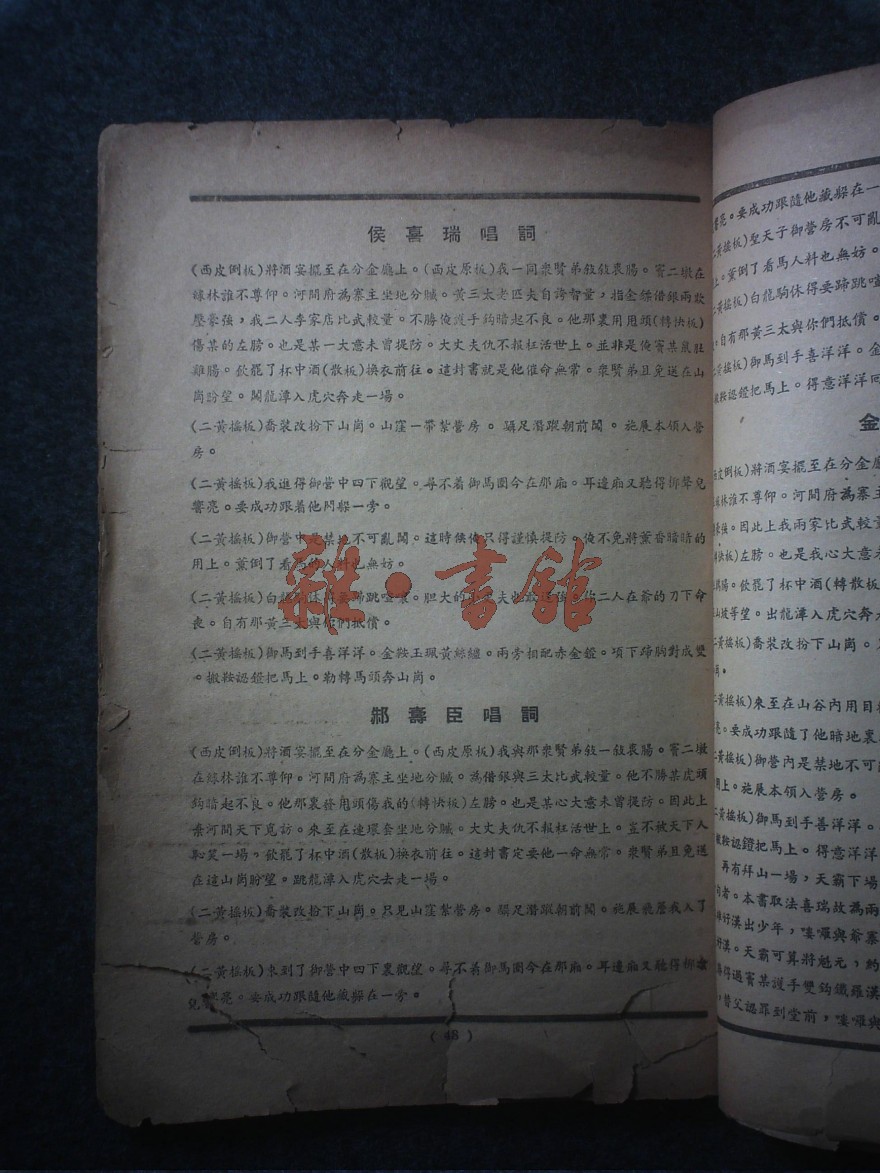 侯喜瑞唱詞
(西皮倒板)將酒宴擺至在分金廳上。(西皮原板)我一同衆賢弟敘敘衷腸。竇二墩在
綠林誰不尊仰。河間府爲寨主坐地分贓。黃三太老匹夫自誇智量,指金鏢借銀兩欺
壓豪強,我二人李家店比武較量。不勝俺護手鈎暗起不良。他那裏用甩頭(轉快板)
傷某的左膀。也是某一大意未曾提防。大丈夫仇不報枉活世上。並非是俺竇某鼠肚
雞腸。飲罷了杯中酒(散板)換衣前往。這封書就是他催命無常。衆賢弟且免送在山
崗盼望。闖龍潭入虎穴奔走一場。
(二黃搖板)喬裝改扮下山崗。山窪一帶紮營房。躡足潛蹤朝前闖。施展本領入營
房。
(二黃搖板)我進得御營中四下觀望。尋不着御馬圈今在那廂。耳邊廂又聽得梆聲兒
響亮。要成功跟着他閃躲一旁。
(二黃搖板)御營中是禁地不可亂闖。這時候俺只得謹慎提防。俺不免將薰香暗暗的
用上。薰倒了看馬的人料也無妨。
(二黃搖板)白龍駒休得要蹄跳喧嚷。胆大的 二人在爺的刀下命
喪。自有那黃三太與你們抵償。
(二黃搖板)御馬到手喜洋洋。金鞍玉珮黃絲繮。兩旁相配赤金鐙。項下蹄胸對成雙
。搬鞍認鐙把馬上。勒轉馬頭奔山崗。
郝壽臣唱詞
(西皮倒板)將酒宴擺至在分金廳上。(西皮原板)我與那衆賢弟敘一敘衷腸。竇二墩
在綠林誰不尊仰。河間府爲寨主坐地分贓。爲借銀與三太比武較量。他不勝某虎頭
鈎暗起不良。他那裏發甩頭傷我的(轉快板)左膀。也是某心大意未曾提防。因此上
棄河間天下覓訪。來至在連環套坐地分贓。大丈夫仇不報枉活世上。豈不被天下人
恥笑一場,飲罷了杯中酒(散板)換衣前往。這封書定要他一命無常。衆賢弟且免送
在這山崗盼望。跳龍潭入虎穴去走一場。
(二黃搖板)喬裝改扮下山崗。只見山窪紮營房。躡足潛蹤朝前闖。施展飛簷我入了
營房。
(二黃搖板)來到了御營中四下裏觀望。尋不着御馬圈今在那廂。耳邊廂又聽得梆聲
兒響亮。要成功跟隨他藏躲在一旁。
(48)
響亮。要成功跟隨他藏躲在一
二黃搖板)聖天子御營房不可亂
上。薰倒了看馬人料也無妨。
二黃搖板)白龍駒休得要蹄跳喧
。自有那黃三太與你們抵償。
二黃搖板)御馬到手喜洋洋。金
搬鞍認鐙把馬上。得意洋洋回
金
西皮倒板)將酒宴擺至在分金廳
綠林誰不尊仰。河間府爲寨主
豪強。因此上我兩家比武較量
轉快板)左膀。也是我心大意
腸。飲罷了杯中酒(轉散板)
山坡等望。出龍潭入虎穴奔大
二黃搖板)喬裝改扮下山崗。
二黃搖板)來至在山谷內用目
亮。要成功跟隨了他暗地裏
二黃搖板)御營內是禁地不可
用上。施展本領入營房。
二黃搖板)御馬到手喜洋洋。
搬鞍認鐙把馬上。得意洋洋
再有拜山一場,天霸下場
者。本書取法喜瑞故爲兩
行漢出少年,嘍囉與爺寨
漢。天霸可算將魁元,約
得過竇某護手雙鈎鐵羅漢
,替父認罪到堂前,嘍囉與
雜·書館